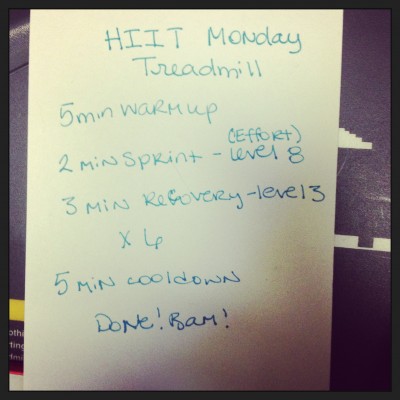 HIIT Monday
Treadmill
5 min warm up
(Effort)
2 min Sprint - level 8
3 min Recovery - level 3
x 6
5 min cooldown
Done! Bam!